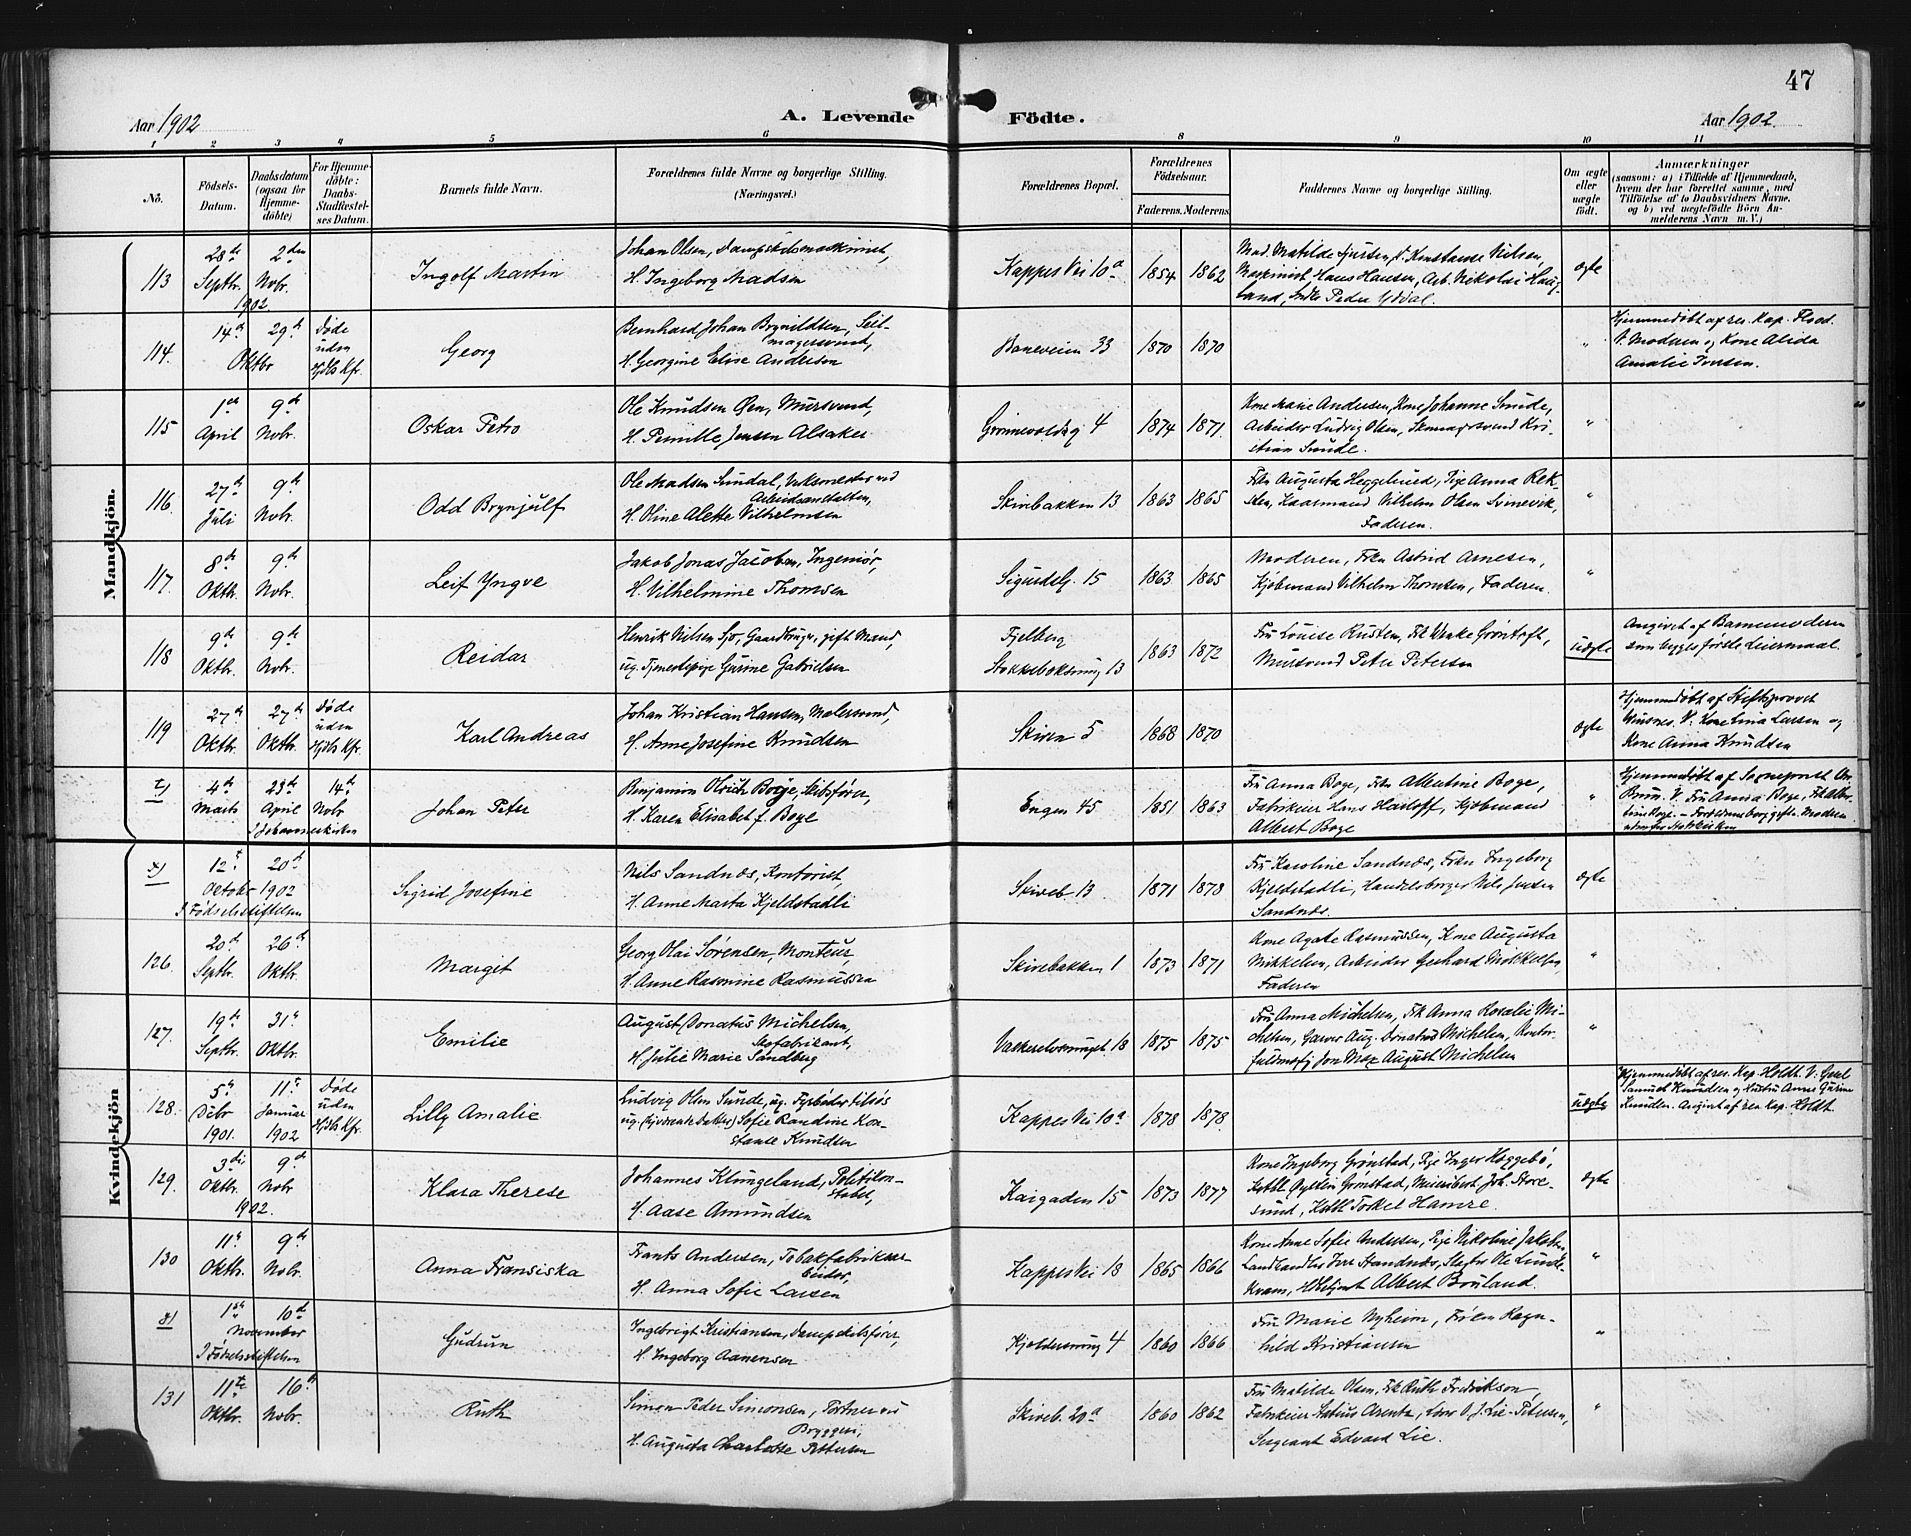 47
Aar 1902
A. Levende
Födte.
Aar 1902.
1 2 3 4 5 6 8 9 10 11
No.
Födsels-
Datum.
Daabsdatum
(ogsaa for
Hjemme-
döbte)
For Hjemme-
döbte:
Daabs-
Stadfæstel-
ses Datum.
Barnets fulde Navn.
Forældrenes fulde Navne og borgerlige Stilling.
(Næringsvei.)
Forældrenes Bopæl.
Forældrenes
Födselsaar.
Faderens.
Moderens.
Faddernes Navne og borgerlige Stilling.
Om ægte
eller
uægte
födt.
Anmærkninger
(saasom: a) i Tilfælde af Hjemmedaab,
hvem der har forrettet samme, med
Tilföielse af to Daabsvidners Navne,
og b) ved uægtefödte Börn An-
melderens Navn m. V.)
Mandkjön.
113
28de Septbr. 2den Nobr.
1902.
Ingolf Martin
Johan Olsen, Dampskibsmaskinist,
H. Ingeborg Madsen
Kappes Vei 10a
1854 1862
Mad. Matilde Sjursen, F. Konstanse Nilsen,
Maskinist Hans Hansen, Arb. Nikolai Haug-
land, Peder Yddal.
ægte
114.
14d 29d
Oktbr
Døde
uden
Hjdbs Kfr.
Georg
Bernhard Johan Brynildsen, Seil-
magersvend,
H. Georgine Elise Andersen
Baneveien 33
1870 1870
"
Hjemmedøbt af res. Kap. Flood.
V. Moderen og Kone Alida
Amalie Iversen.
115
1ste April 9de Nobr.
Oskar Petro
Ole Knudsen Øen, Mursvend,
H. Pernille Jensen Alsaker
Grønnevoldsg 4
1874 1871.
Kone Marie Andersen, Kone Johanne Sunde,
Arbeider Ludvig Olsen, Skomagersvend Kri-
stian Sunde.
"
116.
27de Juli 9de Nobr.
Odd Brynjulf
Ole Madsen Sundal, Værkmester ved
Arbeidsanstalten,
H. Oline Alette Vilhelmsen
Skivebakken 13
1863 1865
Frkn Augusta Heggelund, Pige Anna Rek-
sten, Kaarmand Vilhelm Olsen Svinevik,
Faderen.
"
117.
8de Oktbr. 9de Nobr.
Leif Yngve
Jakob Jonas Jacobsen, Ingeniør,
H. Vilhelmine Thomsen
Sigurdsg. 15
1863 1865
Moderen, Frkn Astrid Arnesen,
Kjøbmand Vilhelm Thomsen, Faderen.
"
118
9de Oktbr. 9de Nobr.
Reidar
Henrik Nilsen Sjo, Gaardbruger, gift Mand,
ug. Tjenestepige Gurine Gabrielsen
Fjelberg
Stokkeboksmug 13
1863 1872
Fru Louise Rusten, Frk Wenke Grøntoft,
Mursvend Peter Petersen
uægte
Angivet af Barnemoderen
som begges første Leiermaal.
119
27de Oktbr. 27de Oktbr.
Døde
uden
Hjdbs Kfr.
Karl Andreas
Johan Kristian Hansen, Malersvend,
H. Anne Josefine Knudsen
Skiven 5
1868 1870
ægte
Hjemmedøbt af Stiftsprovst
V. Kone Lina Larsen og
Kone Anna Knudsen
t)
4de Marts 23de April 14de Nobr
I Johanneskirken
Johan Peter
Benjamin Olrich Boye, Skibsfører,
H. Karen Elisabet f. Boye
Engen 45
1851 1863
Fru Anna Boge, Frkn Albertine Boge,
Fabrikeier Hans Hasloff, Kjøbmand
Albert Boge
"
Hjemmedøbt af Sogneprest
Brun. V. Fru Anna Boge, Frk Alber-
tine Boge. – Forældrene borggifte. Moderen
Kvindekjön
x)
12t 20d
October 1902
I Fødselsstiftelsen
Sigrid Josefine
Nils Sandnæs, Kontorist,
H. Anne Marta Kjeldstadli
Skiveb 13
1871 1873
Fru Karoline Sandnæs, Frkn Ingeborg
Kjeldstadli, Handelsborger Nils Iversen
Sandnæs.
ægte
126.
20d Septbr. 26d Oktbr.
Margit
Georg Olai Sørensen, Montør,
H. Anne Rasmine Rasmussen
Skivebakken 1
1873 1871
Kone Agate Rasmussen, Kone Augusta
Mikkelsen, Arbeider Gerhard Mikkelsen,
Faderen
"
127.
19de Septbr. 31te Oktbr.
Emilie
August Donatus Michelsen,
Skofabrikant,
H. Julie Marie Sandberg
Vaskerelvsmuget 18
1875 1875
Fru Anna Michelsen, Frk Anna Rosalie Mi-
chelsen, Garver Aug. Donatus Michelsen, Kontor-
fuldmægtig Jon Max August Michelsen
"
128.
5te Debr 1901. 11te Januar 1902
Døde
uden
Hjdbs Kfr.
Lilly Amalie
Ludvig Olsen Sunde, ug. Fyrbøder tilsøs
ug. Sofie Randine Kon-
stanse Knudsen
Kappes Vei 10a
1878 1878.
uægte
Hjemmedøbt af res. Kap. Holdt. V:
Samuel Knudsen og Hustru Anne Gurine
Knudsen. Angivet af res. Kap. Holdt.
129.
3die Oktbr. 9de Nobr
1902.
Klara Therese
Johannes Klungeland, Politikon-
stabel,
H. Aase Amundsen
Kaigaden 15
1873 1877
Kone Ingeborg Grønstad, Pige Inger Hoggebø,
Øystein Grønstad, Joh. Store-
sund, Torkel Hamre.
ægte
130
11te Oktbr. 9de Nobr.
Anna Fransiska
Frants Andersen, Tobakfabrikear-
beider,
H. Anna Sofie Larsen
Kappes Vei 18
1865 1866
Kone Anne Sofie Andersen, Pige Nikoline Jakobs.,
Landhandler Iver Standnæs, Slagter Ole Lunde-
kvam, Albert Bruland.
"
y)
1ste 10de
November
I Fødselsstiftelsen
Gudrun
Ingebrigt Kristiansen, Dampskibsfører,
H. Ingeborg Aanensen
Kjoldersmug 4
1860 1866
Fru Marie Nyheim, Frøken Ragn-
hild Kristiansen
"
131
11te Oktbr. 16de Nobr.
Ruth
Simon Peder Simonsen, Portner ved
Bryggeri,
H. Augusta Charlotte Pettersen
Skiveb. 20a
1860 1862
Fru Matilde Olsen, Frk Ruth Fredrikson,
Fabrikeier Statius Arentz, O. J. Lie-Petersen,
Sergeant Edvard Lie.
"